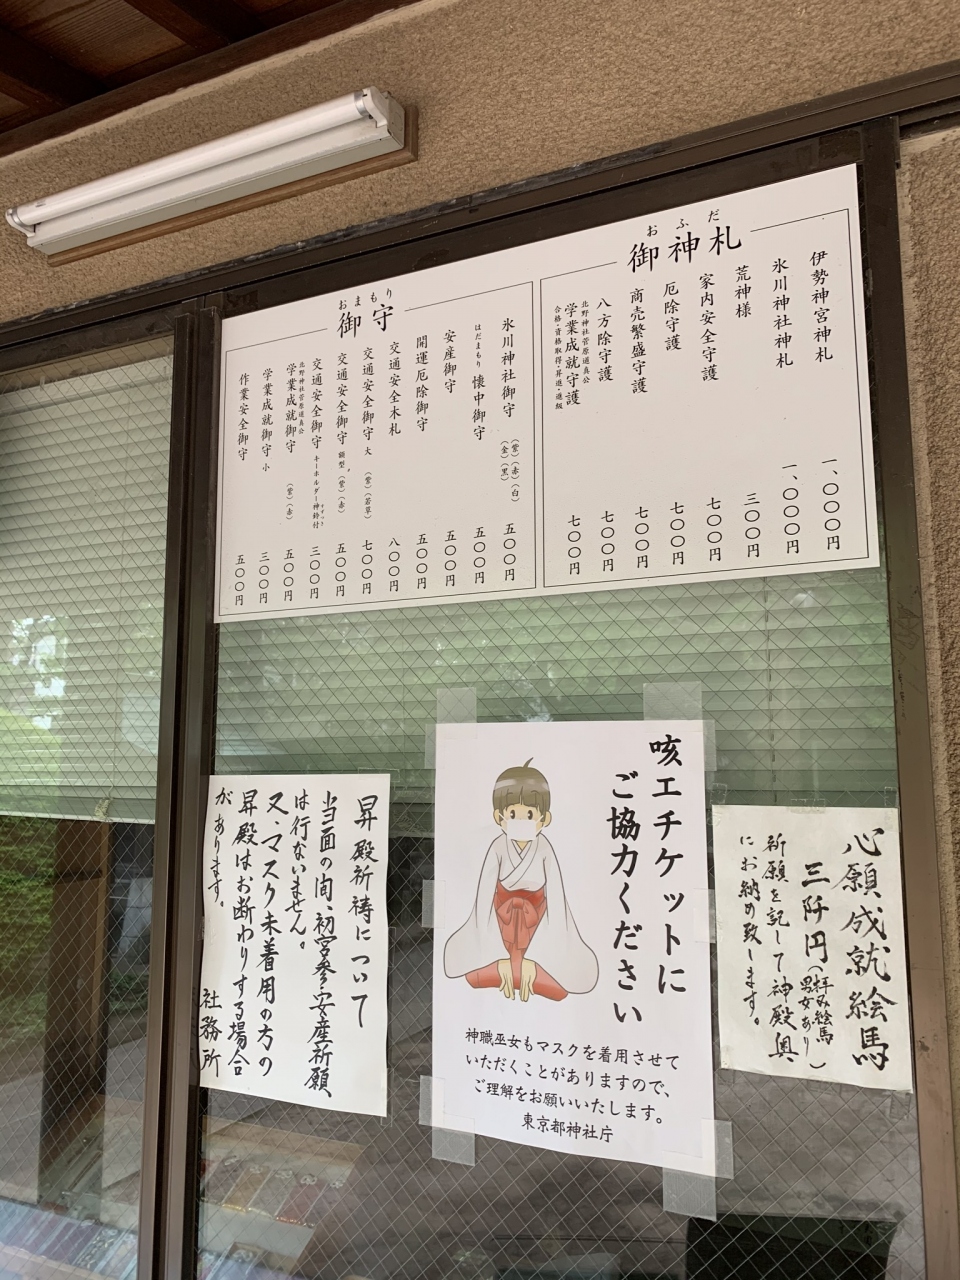 おふだ
御神札
伊勢神宮神札 一、〇〇〇円
氷川神社神札 一、〇〇〇円
荒神様 三〇〇円
家内安全守護 七〇〇円
厄除守護 七〇〇円
商売繁盛守護 七〇〇円
八方除守護 七〇〇円
北野神社菅原道真公
学業成就守護 七〇〇円
合格・資格取得・昇進・進級
おまもり
御守
氷川神社御守 (紫)(赤)(白) (金)(黒) 五〇〇円
はだまもり 懐中御守 五〇〇円
安産御守 五〇〇円
開運厄除御守 五〇〇円
交通安全木札 八〇〇円
交通安全御守 大 (紫)(若草) 七〇〇円
交通安全御守 (紫)(赤) 五〇〇円
交通安全御守 キーホルダー神鈴付 三〇〇円
北野神社菅原道真公
学業成就御守 (紫)(赤) 五〇〇円
学業成就御守 小 三〇〇円
作業安全御守 五〇〇円
心願成就絵馬
三阡円(拝み絵馬 男女あり)
祈願を記して神殿奥
にお納め致します。
咳エチケットに
ご協力ください
神職巫女もマスクを着用させて
いただくことがありますので、
ご理解をお願いいたします。
東京都神社庁
昇殿祈祷について
当面の間、初宮参・安産祈願
は行ないません。
又、マスク未着用の方の
昇殿はお断わりする場合
があります。
社務所